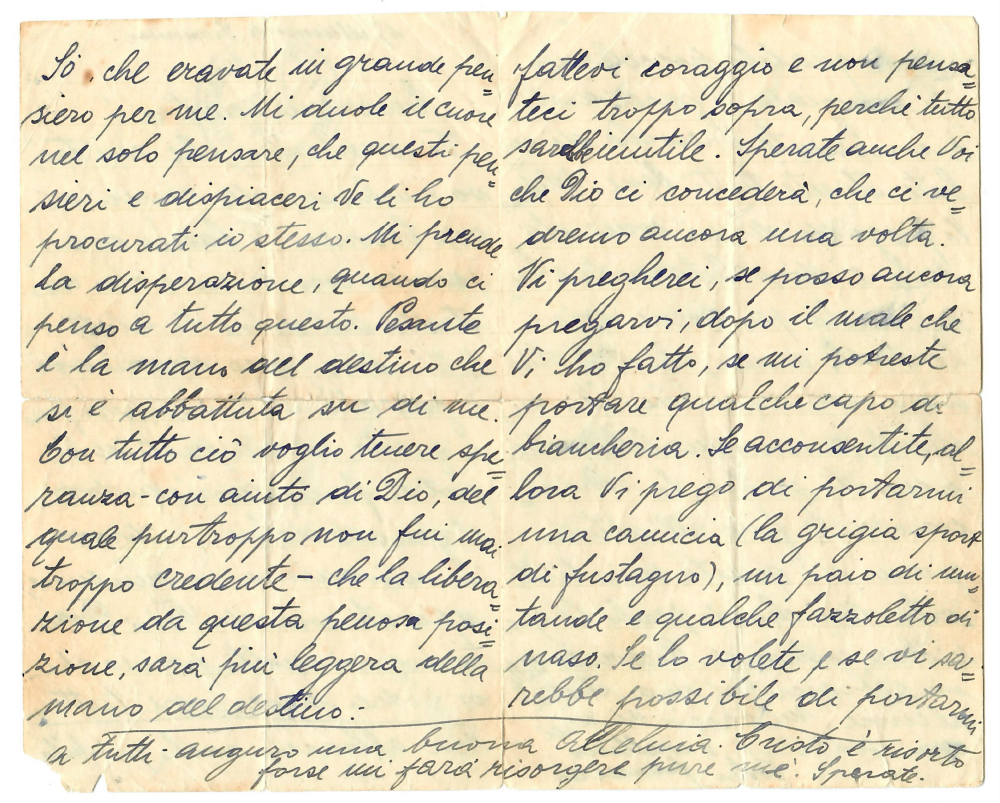 Sò che eravate in grande pen=
siero per me. Mi duole il cuore
nel solo pensare, che questi pen=
sieri e dispiaceri Ve li ho
procurati io stesso. Mi prende
la disperazione, quando ci
penso a tutto questo. Pesante
è la mano del destino che
si è abbattuta su di me.
Con tutto ciò voglio tenere spe=
ranza - con aiuto di Dio, del
quale purtroppo non fui mai
troppo credente - che la libera=
zione da questa penosa posi=
zione, sarà più leggera della
mano del destino.
fattevi coraggio e non pensa=
teci troppo sopra, perchè tutto
sarebbe inutile. Sperate anche Voi
che Dio ci concederà, che ci ve=
dremo ancora una volta.
Vi pregherei, se posso ancora
pregarvi, dopo il male che
Vi ho fatto, se mi potreste
portare qualche capo di
biancheria. Se acconsentite, al=
lora Vi prego di portarmi
una camicia (la grigia sport
di fustagno), un paio di mu=
tande e qualche fazzoletto di
naso. Se lo volete e se vi sa=
rebbe possibile di portarmi
a tutti auguro una buona Alleluia. Cristo è risorto
forse mi farà risorgere pure me. Sperate.